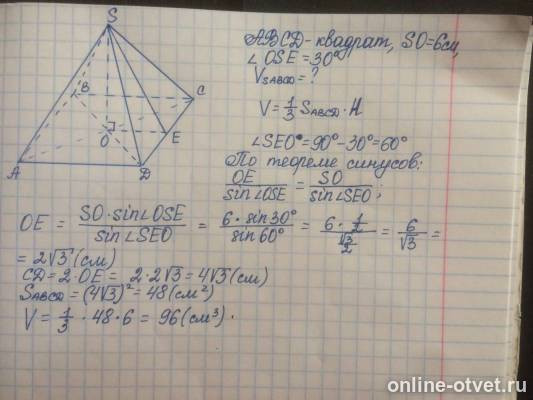 S
B
C
O
E
A
D
ABCD - квадрат, SO = 6см,
∠OSE = 30°
V_SABCD = ?
V = 1/3 S_ABCD · H
∠SEO = 90° - 30° = 60°
По теореме синусов:
OE/sin∠OSE = SO/sin∠SEO ;
OE = SO·sin∠OSE/sin∠SEO = 6·sin30°/sin60° = 6·1/2/√3/2 = 6/√3 =
= 2√3 (см)
CD = 2·OE = 2·2√3 = 4√3 (см)
S_ABCD = (4√3)² = 48 (см²)
V = 1/3 · 48 · 6 = 96 (см³).
online-otvet.ru